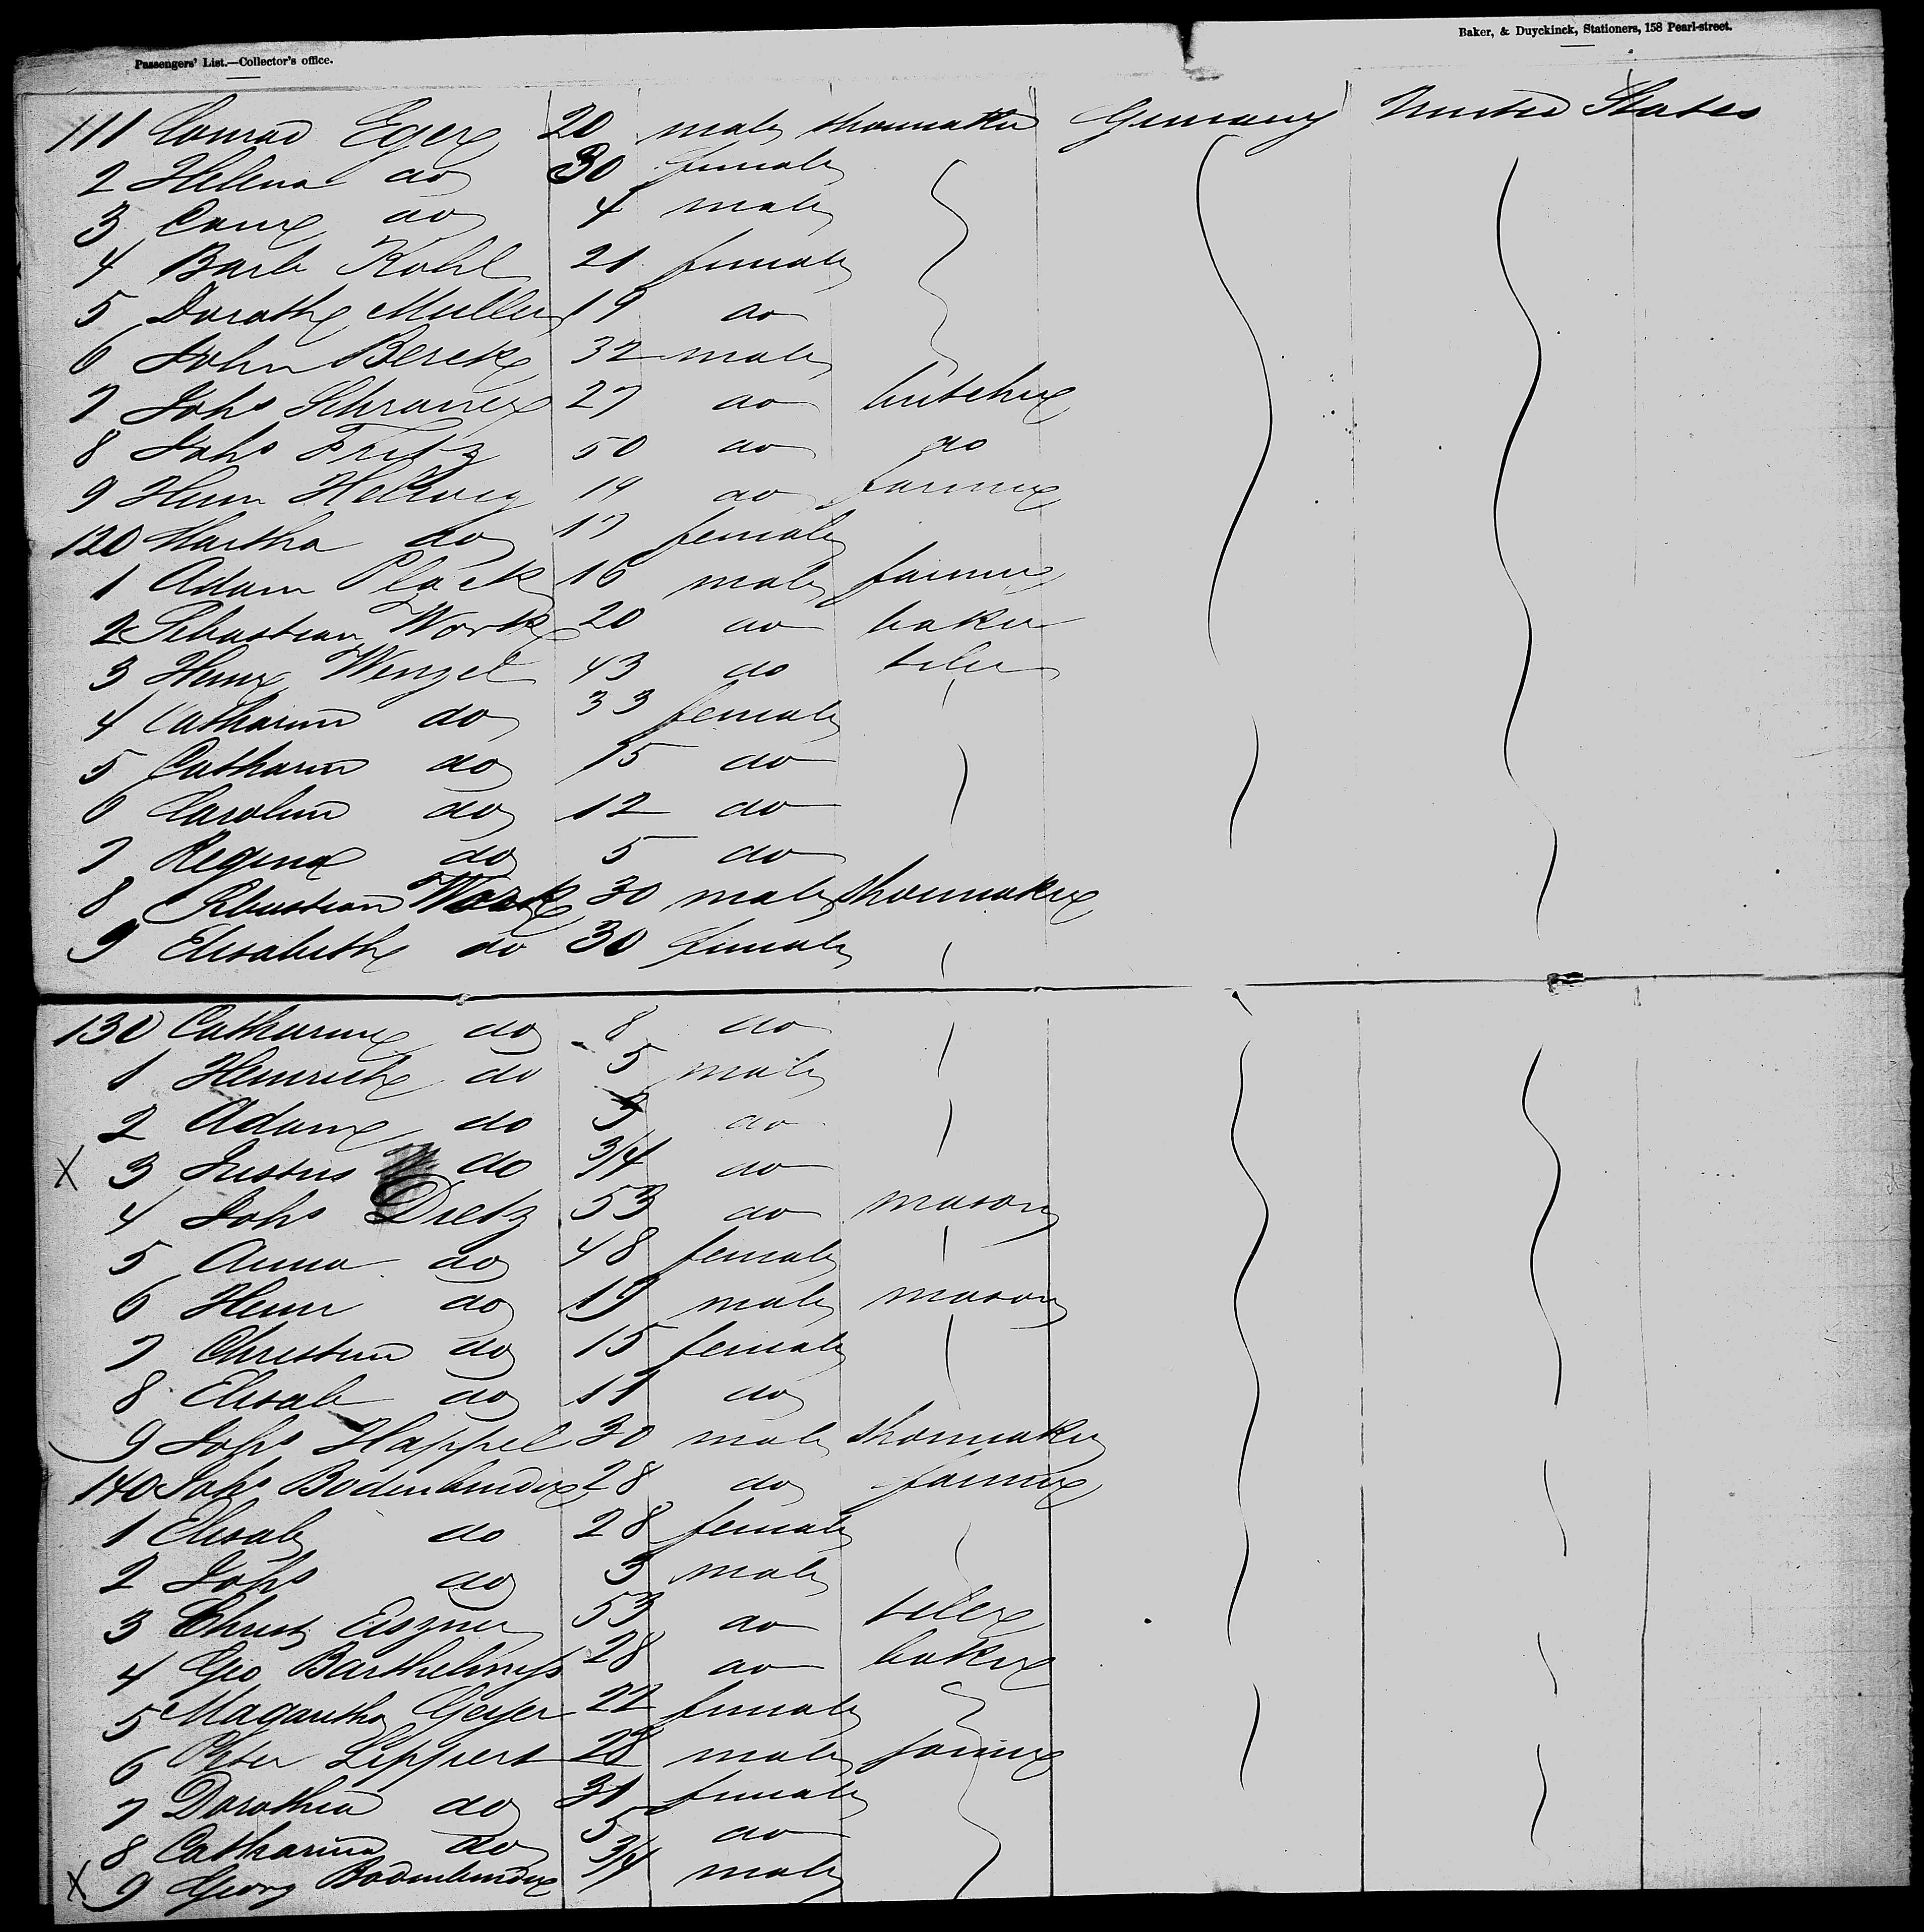 Passengers' List.—Collector's office.
Baker, & Duyckinck, Stationers, 158 Pearl-street.
111 Conrad Eger 20 male shoemaker Germany United States
2 Helena do 30 female
3 do 4 male
4 Barb Kohl 21 female
5 Dorothe Muller 19 do
6 John Berck 32 male
7 Johs 27 do butcher
8 Johs Fritz 50 do do
9 Henr Hellwig 19 do farmer
120 Martha do 17 female
1 Adam Plack 16 male farmer
2 Sebastian Work 20 do baker
3 Henr Wenzel 43 do tiler
4 Catharina do 33 female
5 Catharin do 15 do
6 Carolina do 12 do
7 Regina do 5 do
8 Sebastian Work 30 male shoemaker
9 Elisabeth do 30 female
130 Catharine do 8 do
1 Heinrich do 5 male
2 Adam do 3 do
X 3 Justus do 3/4 do
4 Johs Dietz 53 do mason
5 Anna do 48 female
6 Henr do 19 male mason
7 Christina do 15 female
8 Elisab do 11 do
9 Johs Happel 30 male shoemaker
140 Johs Bodenbender 28 do farmer
1 Elisab do 28 female
2 Johs do 3 male
3 Christ Eiszner 53 do tiler
4 Geo Barthelmess 28 do baker
5 Magaretha Geyer 22 female
6 Peter Lippert 28 male farmer
7 Dorothea do 31 female
8 Catharina do 5 do
X 9 Georg Bodenbender 3/4 male